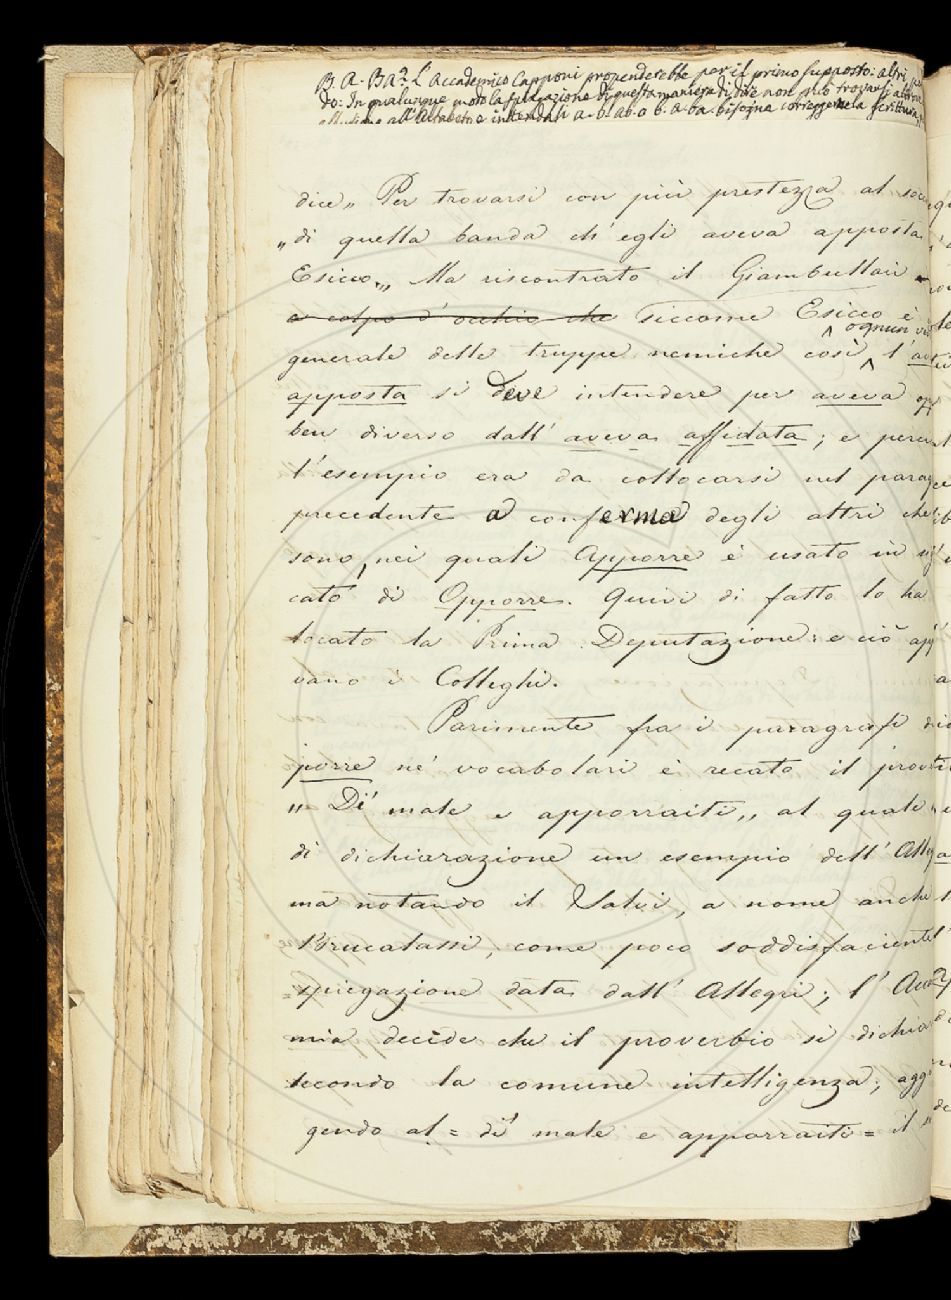 B. A. Ba? L'Accademico Capponi propenderebbe per il primo supposto: altri
do: In qualunque modo la spiegazione di questa maniera di dire non può trovarsi
all'Alfabeto e intendasi a. b. ab. o b. a. ba. bisogna correggere la scrittura
dice „ Per trovarsi con più prestezza al
„ di quella banda ch'egli aveva apposta
Esicco „ Ma riscontrato il Giambullari
a colpo d'occhio che siccome Esicco è
ognun
generale delle truppe nemiche così l'
apposta si deve intendere per aveva
ben diverso dall'aveva affidata; e
l'esempio era da collocarsi nel
precedente a conferma degli altri che
sono, nei quali Apporre è usato in
cato di Opporre. Quivi di fatto lo ha
locato la Prima Deputazione: e ciò
vano i Colleghi.
Parimente fra i paragrafi
porre ne' vocabolari è recato il
„ Di' male e apporraiti „ al quale
di dichiarazione un esempio dell'
ma notando il Salvi, a nome anche
Brucalassi, come poco soddisfaciente
spiegazione data dall'Allegri; l'
mia decide che il proverbio si
secondo la comune intelligenza;
gendo al = di' male e apporraiti = il